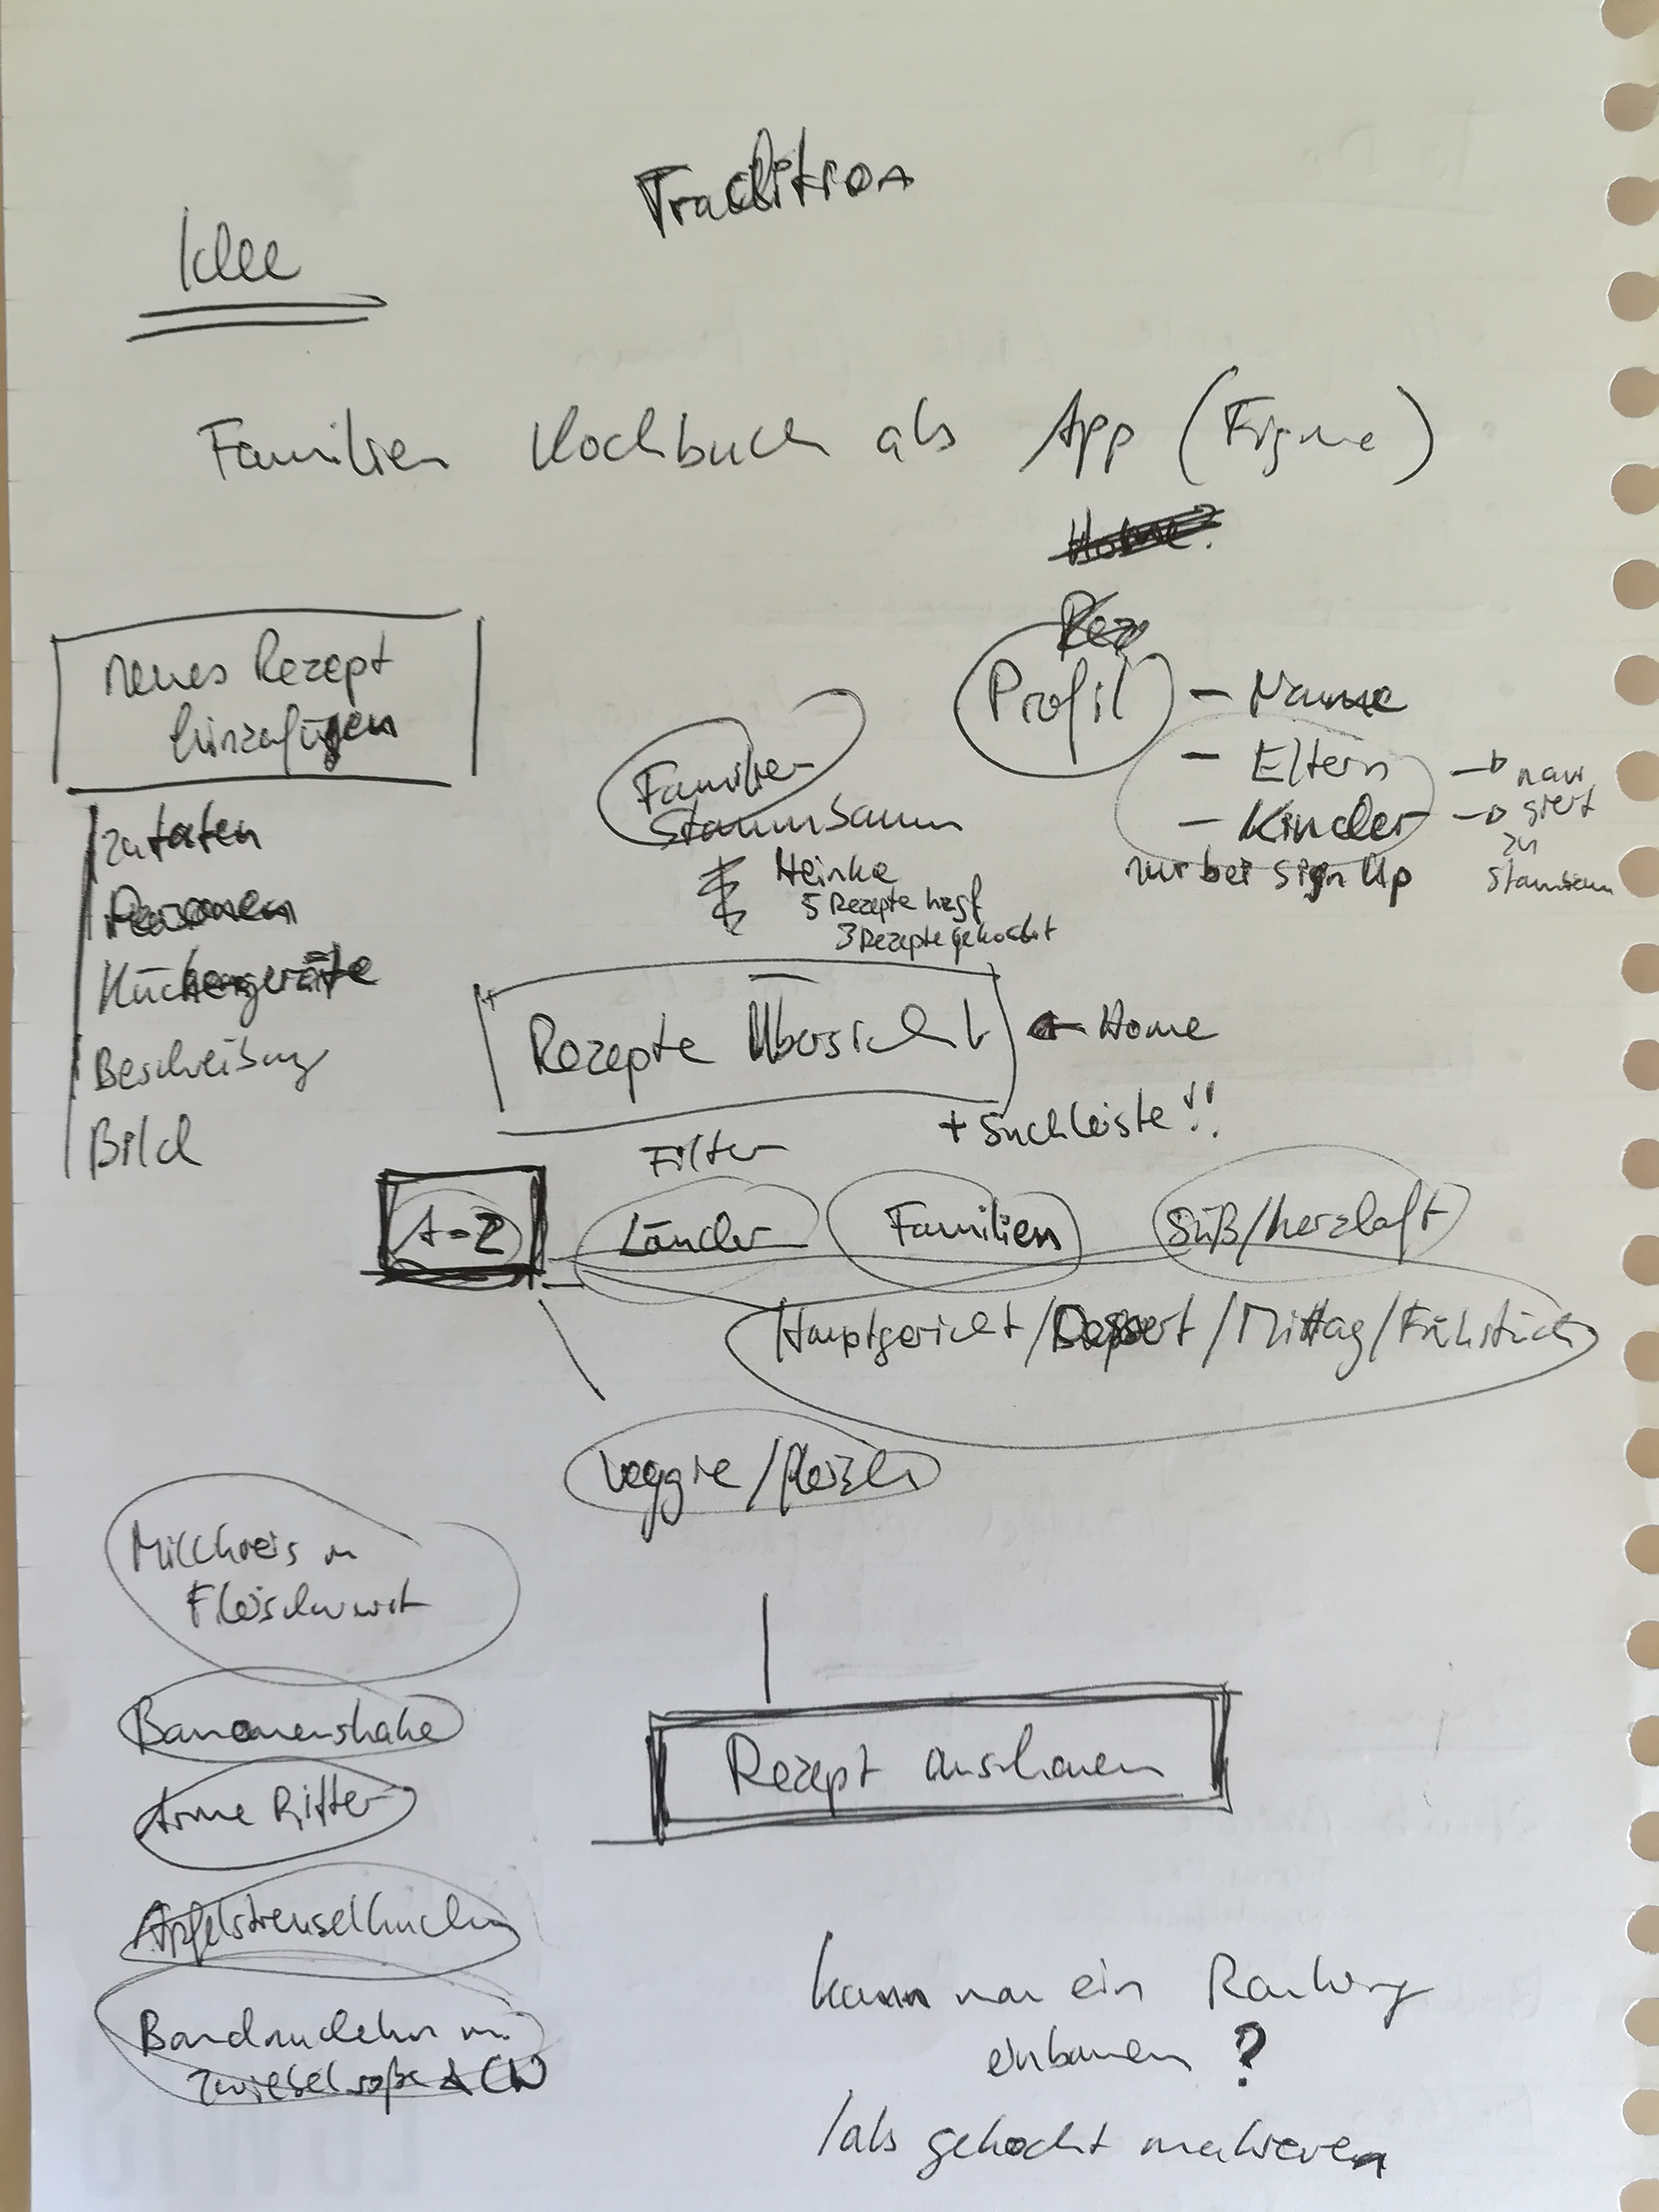 Tradition
Idee
Familien Kochbuch als App (Figma)
Home?
Rez
neues Rezept
hinzufügen
Zutaten
Personen
Küchengeräte
Beschreibung
Bild
Profil
- Name
- Eltern → navi
- Kinder → giert
zu
Stammbaum
nur bei Sign Up
Familien
Stammbaum
Heinke
5 Rezepte
3 Rezepte gekocht
Rezepte Übersicht ← Home
+ Suchleiste!!
Filter
A-Z
Länder
Familien
Süß/herzhaft
Hauptgericht/Dessert/Mittag/Frühstück
Veggie/Fleisch
Milchreis m
Fleischwurst
Bananenshake
Arme Ritter
Apfelstreuselkuchen
Bandnudeln m.
Zwiebelsoße &
Rezept anschauen
kann man ein Ranking
einbauen?
/als gekocht markieren